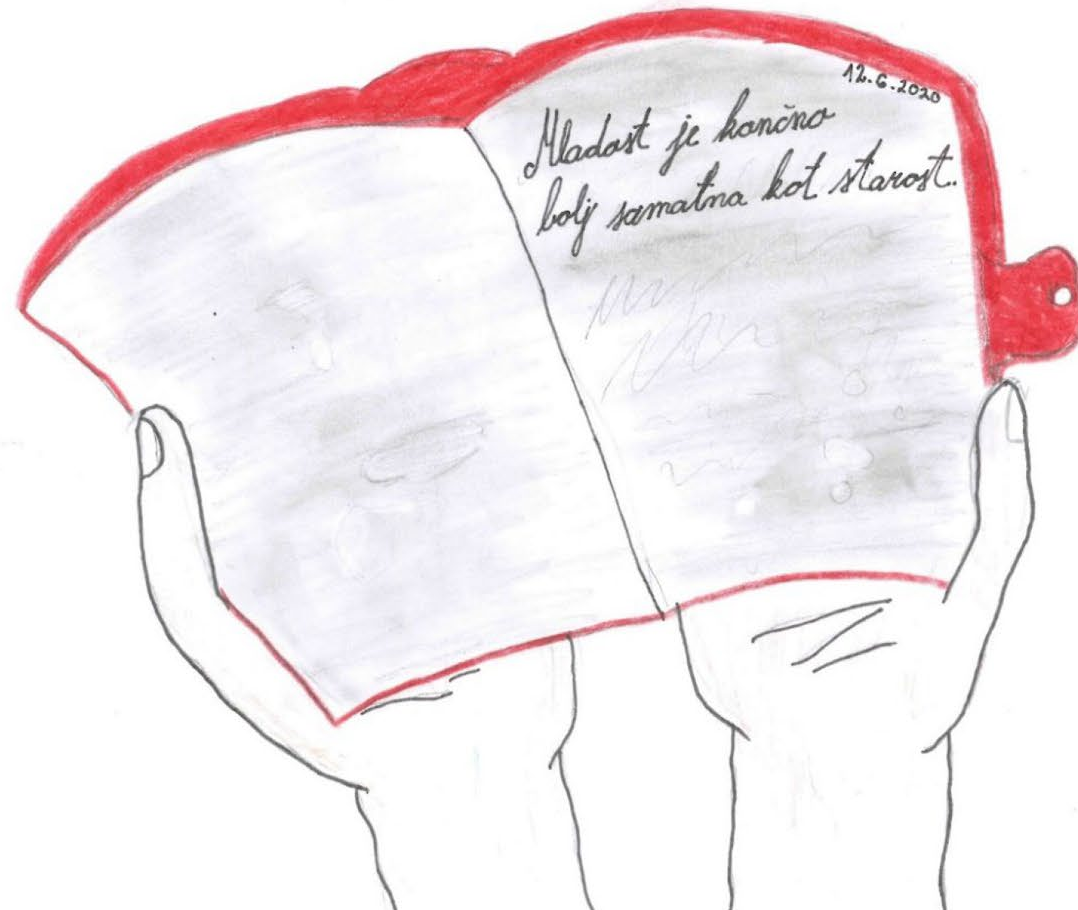 12.6.2020
Mladost je končno
bolj samotna kot starost..